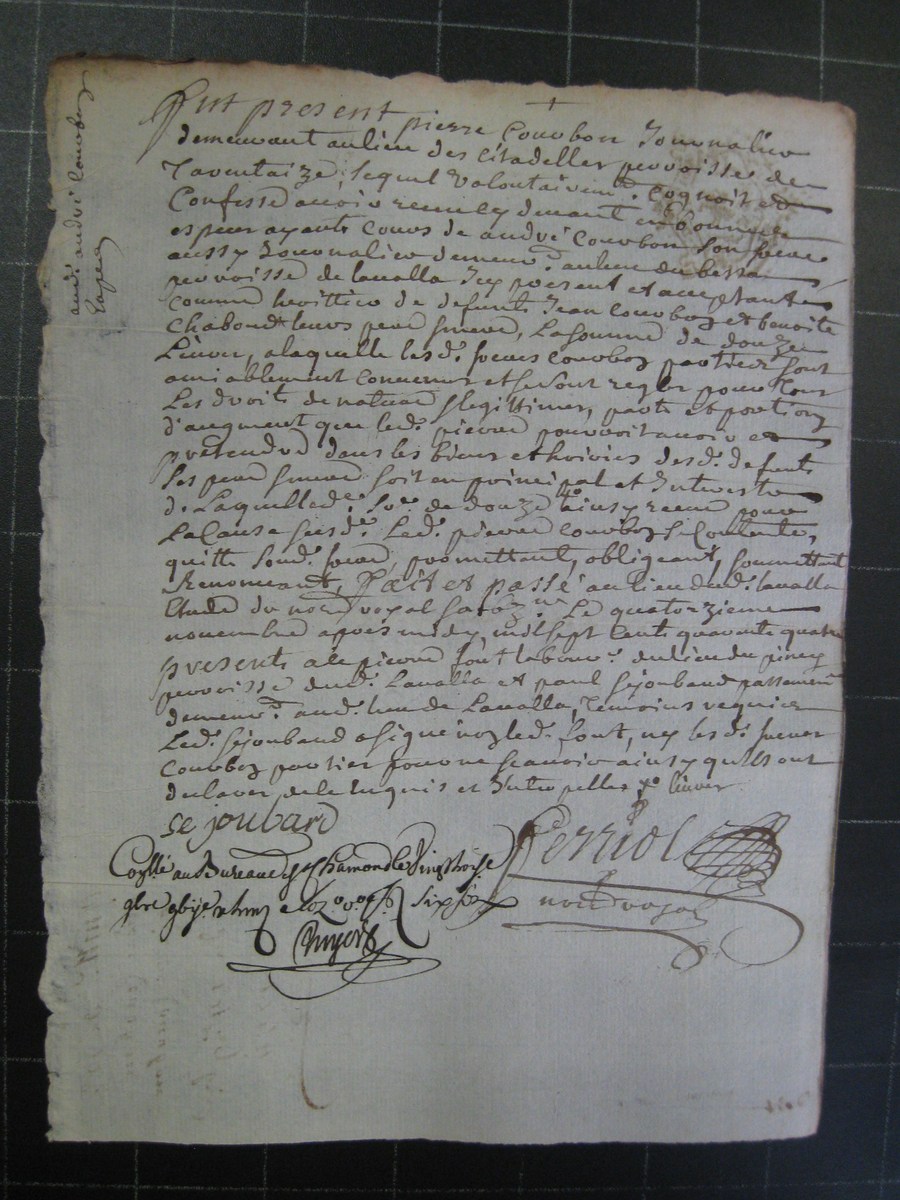 andré Courbon
Fut present pierre Courbon Journalier
demeurant au lieu des Citadelles parroisse de
Tarentaize, lequel volontairemt. Cognoit et
Confesse avoir receu cy devant en bonnes
especes ayants Cours de andré Courbon son frere
aussy Journalier demeurt. au lieu du bessa
parroisse de lavalla Icy present et acceptant
comme heritier de defunts Jean Courbon et benoite
Chabond leurs pere & mere, La somme de douze
Livres, a laquelle lesd. freres Courbon parties sont
amiablement convenus et se sont regler pour tous
Les droits de nature legittimes, parts et portions
d'augment que led. pierre pourroit avoir et
pretendre dans les biens et hoiries desd. defunts
Ses pere & mere soit en principal et Interests
de Laquelle de. so̅e. de douze ainsy receu pour
La Cause susde. Led. pierre Courbon se Contente,
quitte sond. frere, promettant, obligeant, soummettant
Renonceant, Fait et passé au lieu dud. lavalla
Etude du nore royal Le quatorzieme
novembre apres midy, mil sept cents quarante quatre
presents a ce pierre font labourr. du lieu du pinay
parroisse dud. Lavalla et paul sejoubard passement
demeurt. aud. lieu de Lavalla, Temoins requis
Led. sejoubard a signé non led. font, ny lesd. freres
Courbon parties pour ne scavoir ainsy qu'ils ont
declarer de ce enquis et Interpelles livres
se joubard
Perriol
nore royal
Con̅llé au Bureau de St Chamond le vingt trois e
9bre six sols